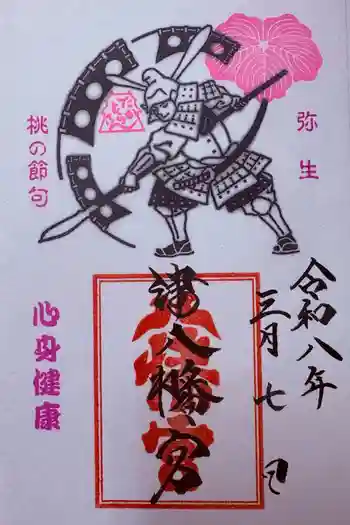 弥生
桃の節句
令和八年
三月七日
津八幡宮
心身健康